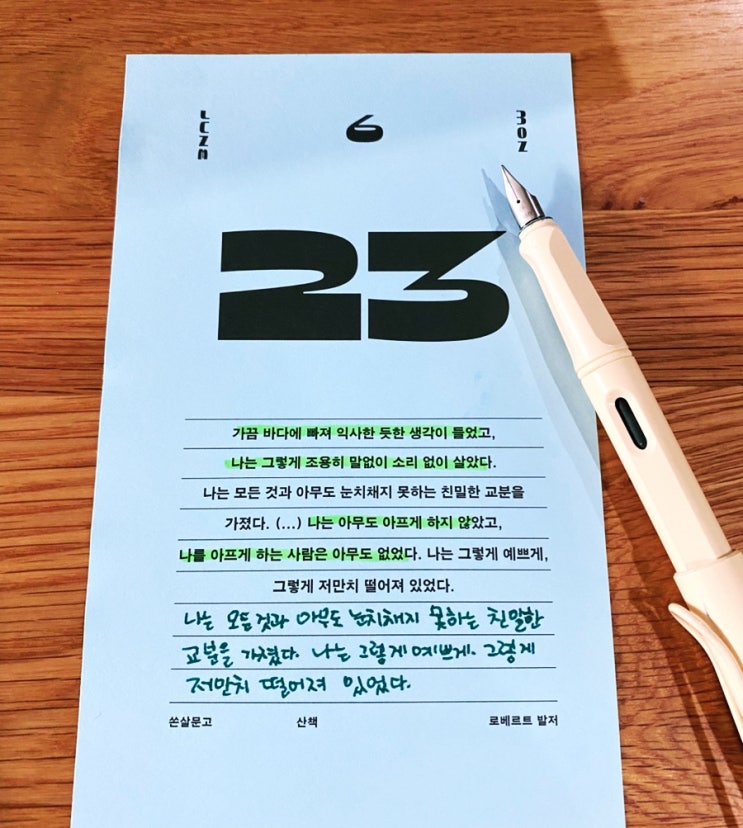 JUNE
6
MON
23
가끔 바다에 빠져 익사한 듯한 생각이 들었고,
나는 그렇게 조용히 말없이 소리 없이 살았다.
나는 모든 것과 아무도 눈치채지 못하는 친밀한 교분을
가졌다. (...) 나는 아무도 아프게 하지 않았고,
나를 아프게 하는 사람은 아무도 없었다. 나는 그렇게 예쁘게,
그렇게 저만치 떨어져 있었다.
나는 모든 것과 아무도 눈치채지 못하는 친밀한
교분을 가졌다. 나는 그렇게 예쁘게. 그렇게
저만치 떨어져 있었다.
쏜살문고 산책 로베르트 발저